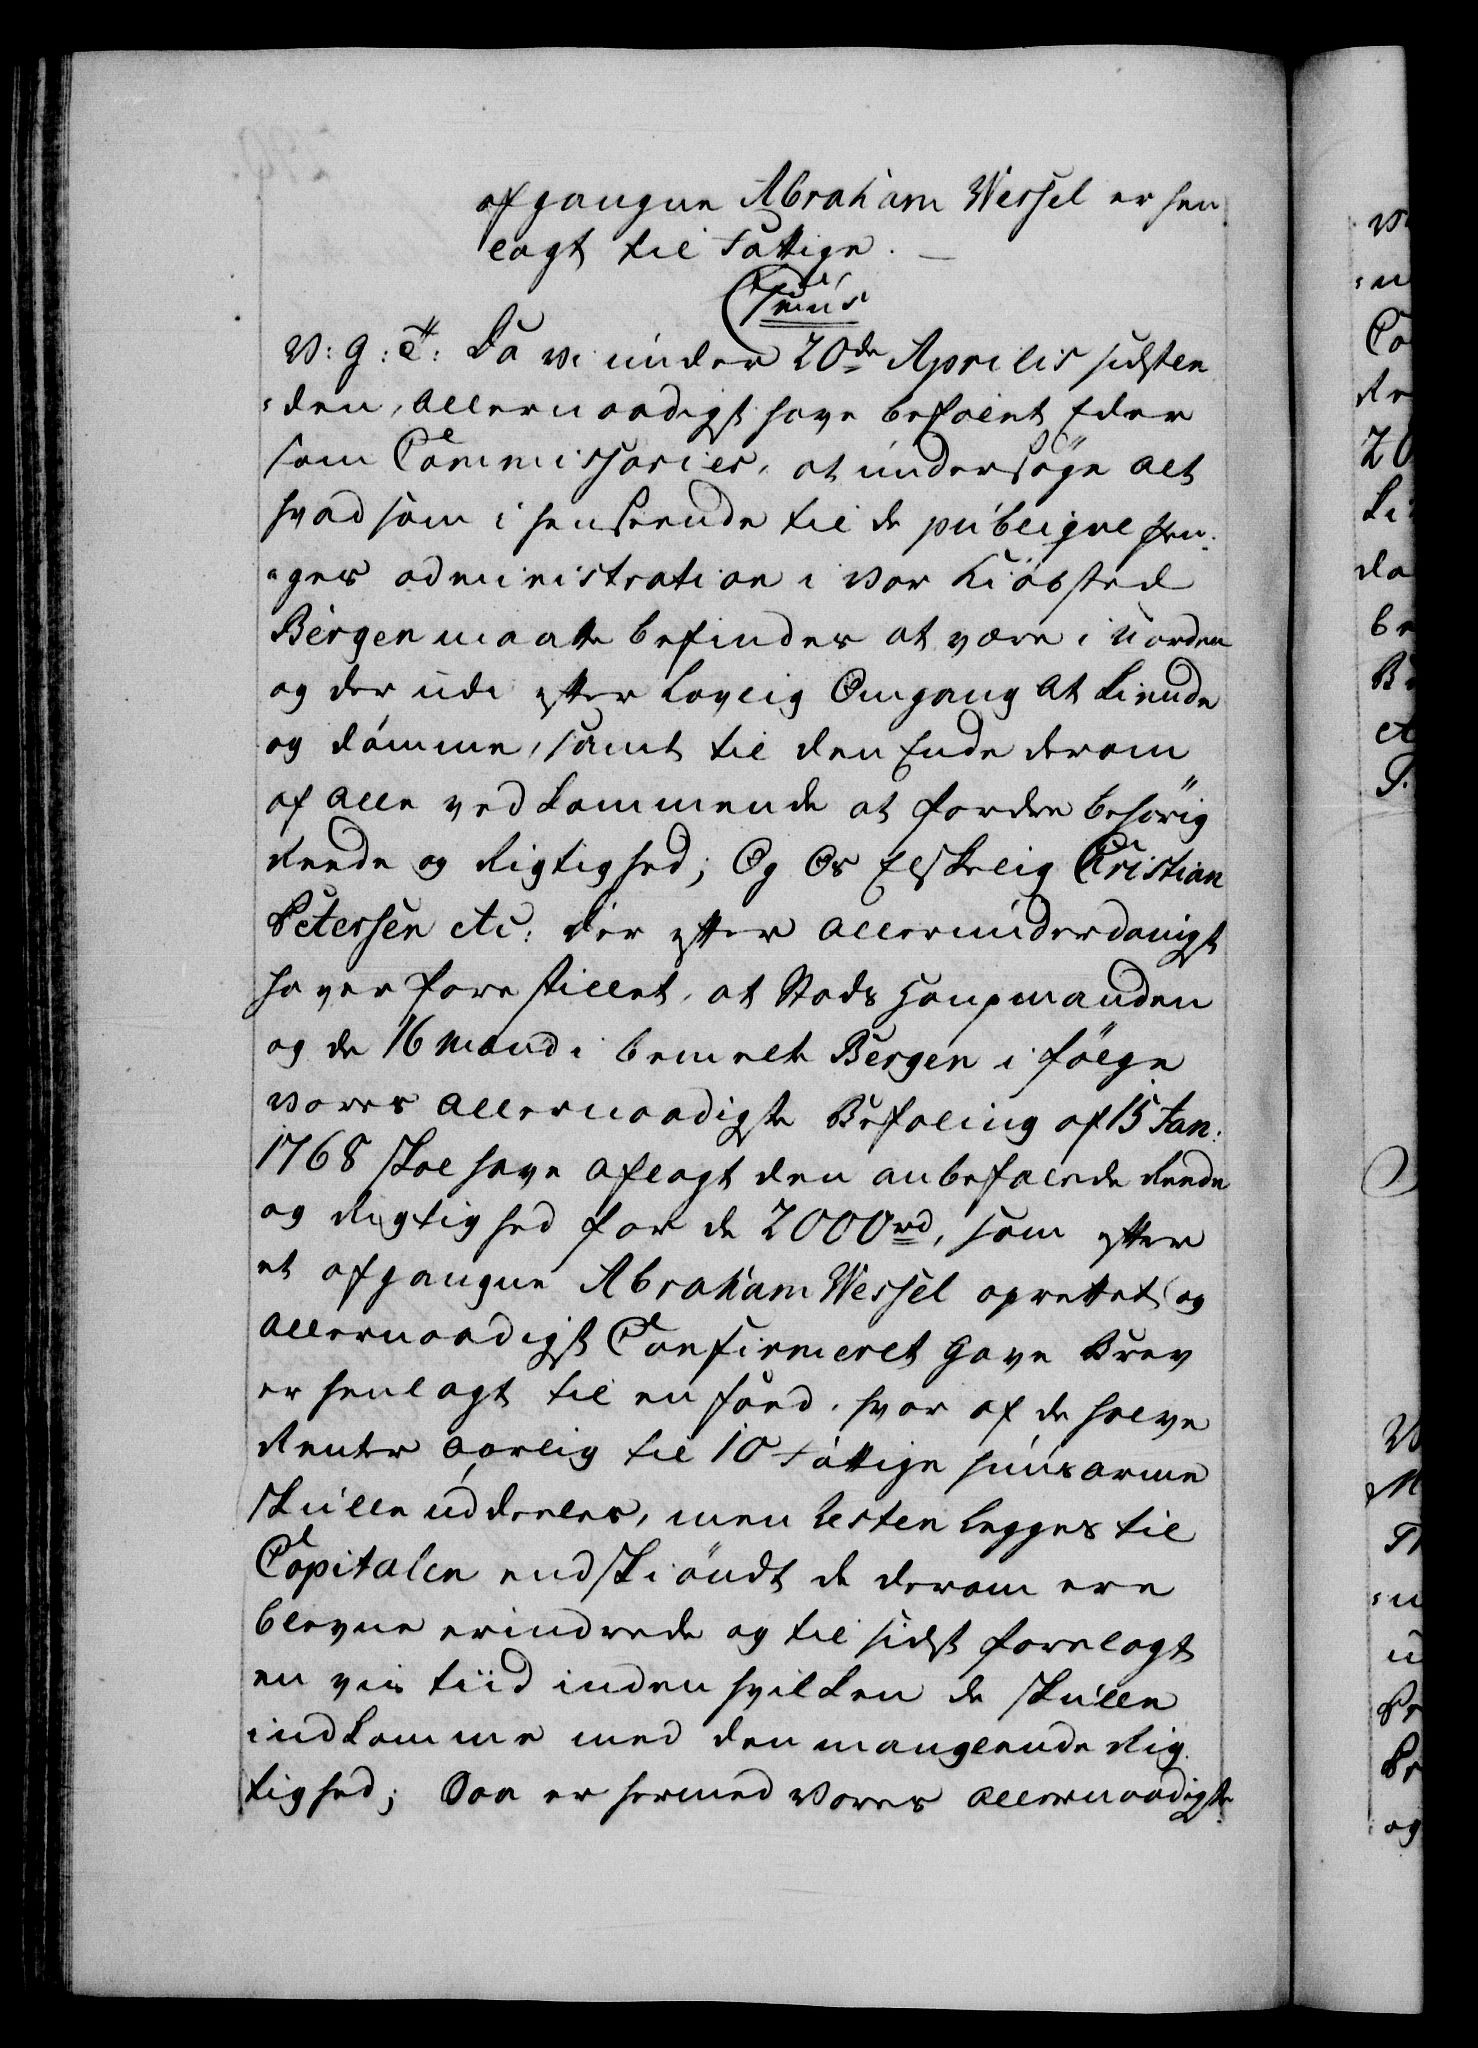 afgangne Abraham Wessel er hen
lagt til Fattige. —
C 7mus
V: g: T: Da vi under 20de Aprilis sidsten
=den, allernaadigst have befalet Eder
som Commissarier, at undersøge alt
hvad som i henseende til de publiqve Pen-
=ges administration i vor Kiøbsted
Bergen maatte befindes at være i uorden
og der udi efter Lovlig Omgang at kiende
og dømme, samt til den Ende derom
af alle vedkommende at fordre behørig
Reede og Rigtighed; Og Os Elskelig Christian
Petersen etc: der efter allerunderdanigst
haver forestillet, at Stads Haupmanden
og de 16 Mænd i bemelte Bergen i følge
vores allernaadigste Befaling af 15 Jan:
1768 skal have aflagt den anbefalede Reede
og Rigtighed for de 2000rd, som efter
et afgangne Abraham Wessel oprettet og
allernaadigst Confirmeret Gave Brev
er henlagt til en fond, hvor af de halve
Renter aarlig til 10 Fattige huusarme
skulle uddeeles, men Resten legges til
Capitalen endskiøndt de derom ere
blevne erindrede og til sidst forelagt
en vis tiid inden hvilken de skulle
indkomme med den manglende Rig-
tighed; Saa er hermed vores allernaadigste